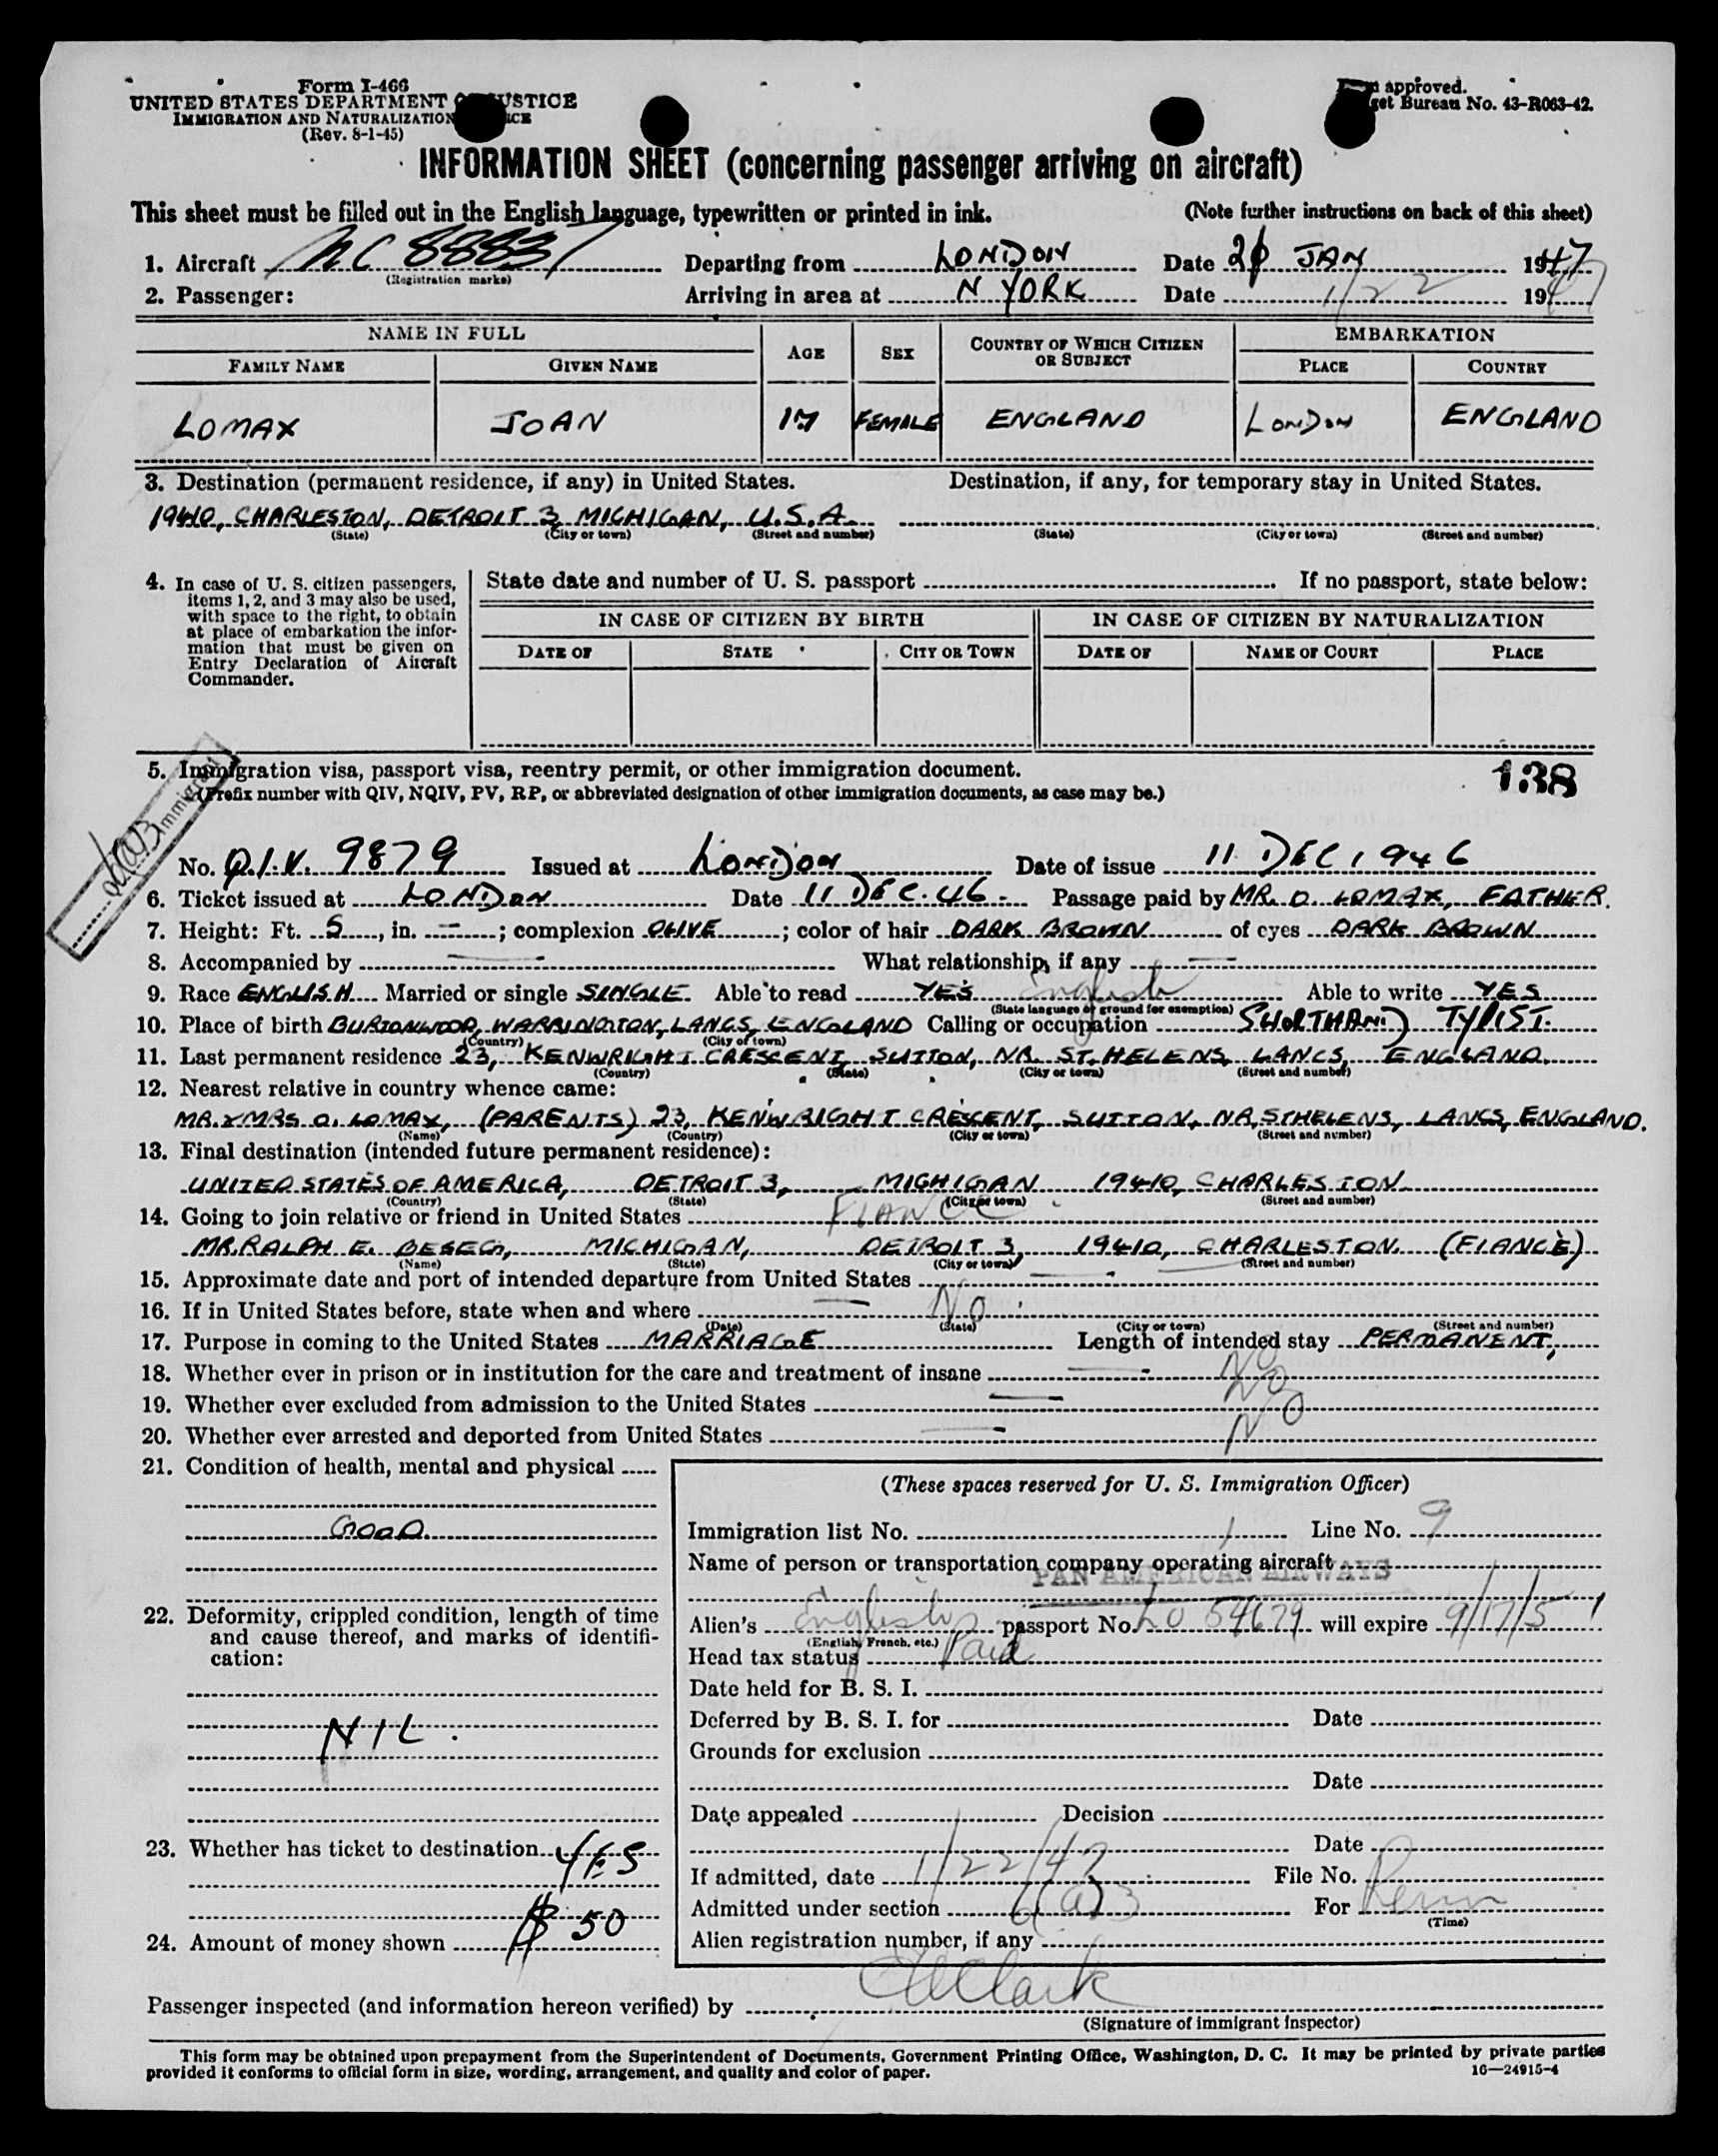 Form I-466
UNITED STATES DEPARTMENT OF JUSTICE
IMMIGRATION AND NATURALIZATION
(Rev. 8-1-45)
approved.
Bureau No. 43-R063-42.
INFORMATION SHEET (concerning passenger arriving on aircraft)
This sheet must be filled out in the English language, typewritten or printed in ink. (Note further instructions on back of this sheet)
1. Aircraft NC 88837 Departing from LONDON Date JAN 1947
(Registration marks)
2. Passenger: Arriving in area at N YORK Date 1/22 1947
NAME IN FULL AGE SEX COUNTRY OF WHICH CITIZEN OR SUBJECT EMBARKATION
FAMILY NAME GIVEN NAME PLACE COUNTRY
LOMAX JOAN 17 FEMALE ENGLAND LONDON ENGLAND
3. Destination (permanent residence, if any) in United States. Destination, if any, for temporary stay in United States.
19410, CHARLESTON, DETROIT 3, MICHIGAN, U.S.A.
(State) (City or town) (Street and number) (State) (City or town) (Street and number)
4. In case of U. S. citizen passengers, items 1, 2, and 3 may also be used, with space to the right, to obtain at place of embarkation the information that must be given on Entry Declaration of Aircraft Commander.
State date and number of U. S. passport If no passport, state below:
IN CASE OF CITIZEN BY BIRTH IN CASE OF CITIZEN BY NATURALIZATION
DATE OF STATE CITY OR TOWN DATE OF NAME OF COURT PLACE
5. Immigration visa, passport visa, reentry permit, or other immigration document. 138
(Prefix number with QIV, NQIV, PV, RP, or abbreviated designation of other immigration documents, as case may be.)
Immigrant
No. Q.I.V. 9879 Issued at LONDON Date of issue 11 DEC 1946
6. Ticket issued at LONDON Date 11 DEC. 46 Passage paid by MR. O. LOMAX, FATHER.
7. Height: Ft. 5, in. -; complexion OLIVE; color of hair DARK BROWN of eyes DARK BROWN
8. Accompanied by — What relationship, if any —
9. Race ENGLISH Married or single SINGLE. Able to read YES English Able to write YES
(State language or ground for exemption)
10. Place of birth BURTONWOOD, WARRINGTON, LANCS, ENGLAND Calling or occupation SHORTHAND TYPIST.
(Country) (City of town)
11. Last permanent residence 23, KENWRIGHT CRESCENT, SUTTON, NR. ST. HELENS, LANCS, ENGLAND.
(Country) (State) (City or town) (Street and number)
12. Nearest relative in country whence came:
MR. & MRS O. LOMAX, (PARENTS) 23, KENWRIGHT CRESCENT, SUTTON, NR, ST HELENS, LANCS, ENGLAND.
(Name) (Country) (City or town) (Street and number)
13. Final destination (intended future permanent residence):
UNITED STATES OF AMERICA, DETROIT 3, MICHIGAN 19410, CHARLESTON
(Country) (State) (City or town) (Street and number)
14. Going to join relative or friend in United States FIANCE
MR. RALPH E. MICHIGAN, DETROIT 3, 19410, CHARLESTON. (FIANCÈ)
(Name) (State) (City or town) (Street and number)
15. Approximate date and port of intended departure from United States —
16. If in United States before, state when and where — No
(Date) (State) (City or town) (Street and number)
17. Purpose in coming to the United States MARRIAGE Length of intended stay PERMANENT,
18. Whether ever in prison or in institution for the care and treatment of insane — No
19. Whether ever excluded from admission to the United States — No
20. Whether ever arrested and deported from United States — No
21. Condition of health, mental and physical
GOOD
22. Deformity, crippled condition, length of time and cause thereof, and marks of identification:
NIL.
23. Whether has ticket to destination YES
24. Amount of money shown $50
(These spaces reserved for U. S. Immigration Officer)
Immigration list No. 1 Line No. 9
Name of person or transportation company operating aircraft
PAN AMERICAN AIRWAYS
Alien's English passport No. LO 54679 will expire 9/17/51
(English, French, etc.)
Head tax status Paid
Date held for B. S. I.
Deferred by B. S. I. for Date
Grounds for exclusion
Date
Date appealed Decision
Date
If admitted, date 1/22/47 File No.
Admitted under section 6(a)3 For Perm
(Time)
Alien registration number, if any
Passenger inspected (and information hereon verified) by Clark
(Signature of immigrant inspector)
This form may be obtained upon prepayment from the Superintendent of Documents, Government Printing Office, Washington, D. C. It may be printed by private parties
provided it conforms to official form in size, wording, arrangement, and quality and color of paper. 16—24915-4